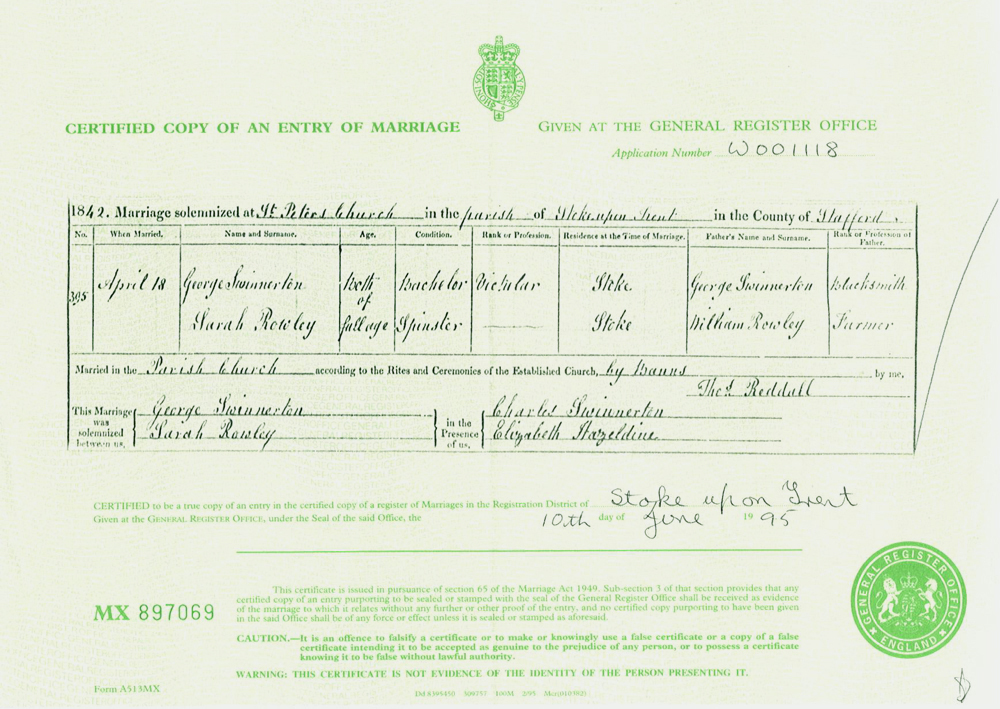 CERTIFIED COPY OF AN ENTRY OF MARRIAGE
GIVEN AT THE GENERAL REGISTER OFFICE
Application Number W001118
1842. Marriage solemnized at St. Peters Church in the parish of Stoke upon Trent in the County of Stafford.
No. When Married. Name and Surname. Age. Condition. Rank or Profession. Residence at the Time of Marriage. Father's Name and Surname. Rank or Profession of Father.
395 April 18 George Swinnerton Both of Bachelor Victular Stoke George Swinnerton Blacksmith
Sarah Rowley full age Spinster Stoke William Rowley Farmer
Married in the Parish Church according to the Rites and Ceremonies of the Established Church, by Banns by me,
Thos. Reddall
This Marriage was solemnized between us, George Swinnerton in the Presence of us, Charles Swinnerton
Sarah Rowley Elizabeth Hazeldine
CERTIFIED to be a true copy of an entry in the certified copy of a register of Marriages in the Registration District of Stoke upon Trent
Given at the GENERAL REGISTER OFFICE, under the Seal of the said Office, the 10th day of June 19 95
MX 897069
This certificate is issued in pursuance of section 65 of the Marriage Act 1949. Sub-section 3 of that section provides that any
certified copy of an entry purporting to be sealed or stamped with the seal of the General Register Office shall be received as evidence
of the marriage to which it relates without any further or other proof of the entry, and no certified copy purporting to have been given
in the said Office shall be of any force or effect unless it is sealed or stamped as aforesaid.
CAUTION.—It is an offence to falsify a certificate or to make or knowingly use a false certificate or a copy of a false
certificate intending it to be accepted as genuine to the prejudice of any person, or to possess a certificate
knowing it to be false without lawful authority.
WARNING: THIS CERTIFICATE IS NOT EVIDENCE OF THE IDENTITY OF THE PERSON PRESENTING IT.
GENERAL REGISTER OFFICE
ENGLAND
Form A513MX
100M 2/95